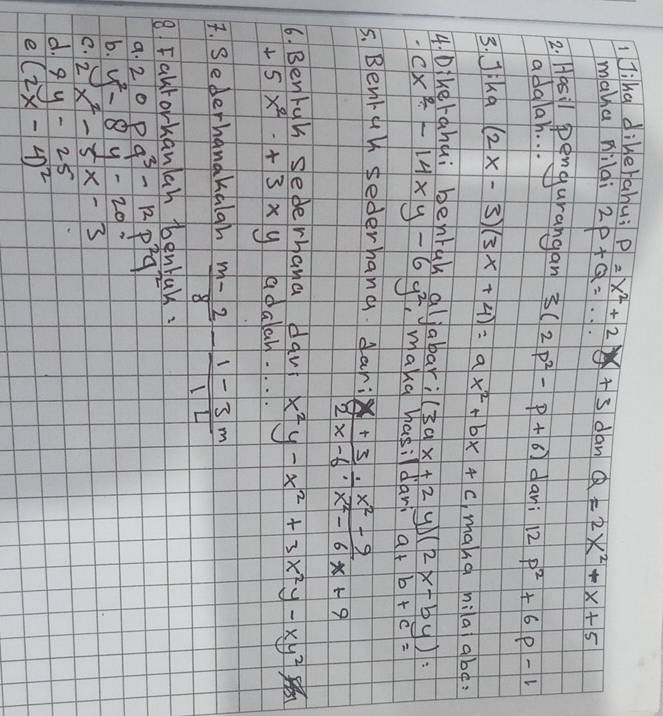 1 Jika diketahui P = x² + 2x + 3 dan Q = 2x² + x + 5
maka nilai 2P + Q = ...
2. Hasil pengurangan 3(2p² - p + 6) dari 12p² + 6p - 1
adalah...
3. Jika (2x - 3)(3x + 4) = ax² + bx + c, maka nilai abc =
4. Diketahui bentuk aljabar : (3ax + 2y)(2x - by) =
cx² - 14xy - 6y², maka hasil dari a + b + c =
5. Bentuk sederhana dari x + 3 / 2x - 6 : x² - 9 / x² - 6x + 9
6. Bentuk sederhana dari x²y - x² + 3x²y - xy²
+ 5x² + 3xy adalah....
7. Sederhanakalah m - 2 / 8 - 1 - 3m / 12
8. Faktorkanlah bentuk :
a. 20pq³ - 12p²q²
b. y² - 8y - 20
c. 2x² - 5x - 3
d. 9y - 25
e (2x - 4)²